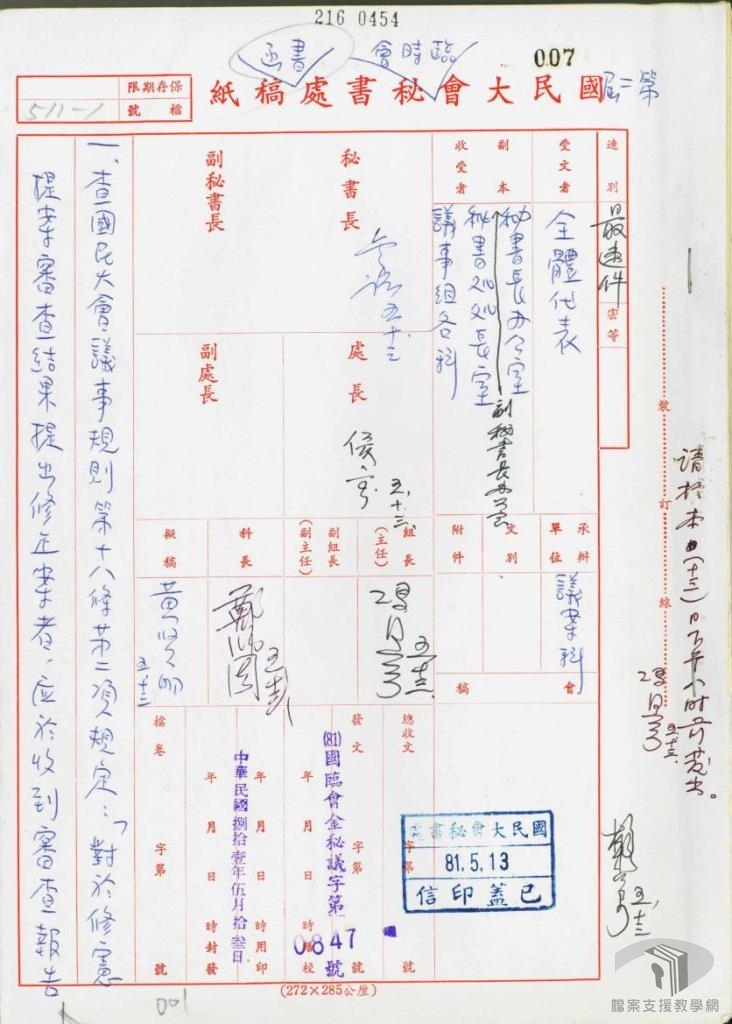 216 0454
007
臨時會
書函
第二屆
國民大會秘書處稿紙
保存期限
檔號
511-1
速別
最速件
密等
受文者
全體代表
副本收受者
秘書長辦公室
秘書處處長室
議事組各科
副秘書長辦公室
秘書長
五、十三
副秘書長
處長
五、十三
副處長
承辦單位
議案科
文別
附件
組長(主任)
副組長(副主任)
科長
擬稿
會稿
總收文 字第 號
發文 字第 號
(81)國臨會金秘議字第0847號
年 月 日 時繕校
年 月 日 時用印
年 月 日 時封發
中華民國捌拾壹年伍月拾叁日
檔卷 字第 號
國民大會秘書處
81.5.13
已蓋印信
一、查國民大會議事規則第十八條第二項規定:「對於修憲
提案審查結果提出修正案者,應於收到審查報告
裝
訂
線
請於本(十三)日下午 時前發出。
(272×285公厘)
001
檔案支援教學網